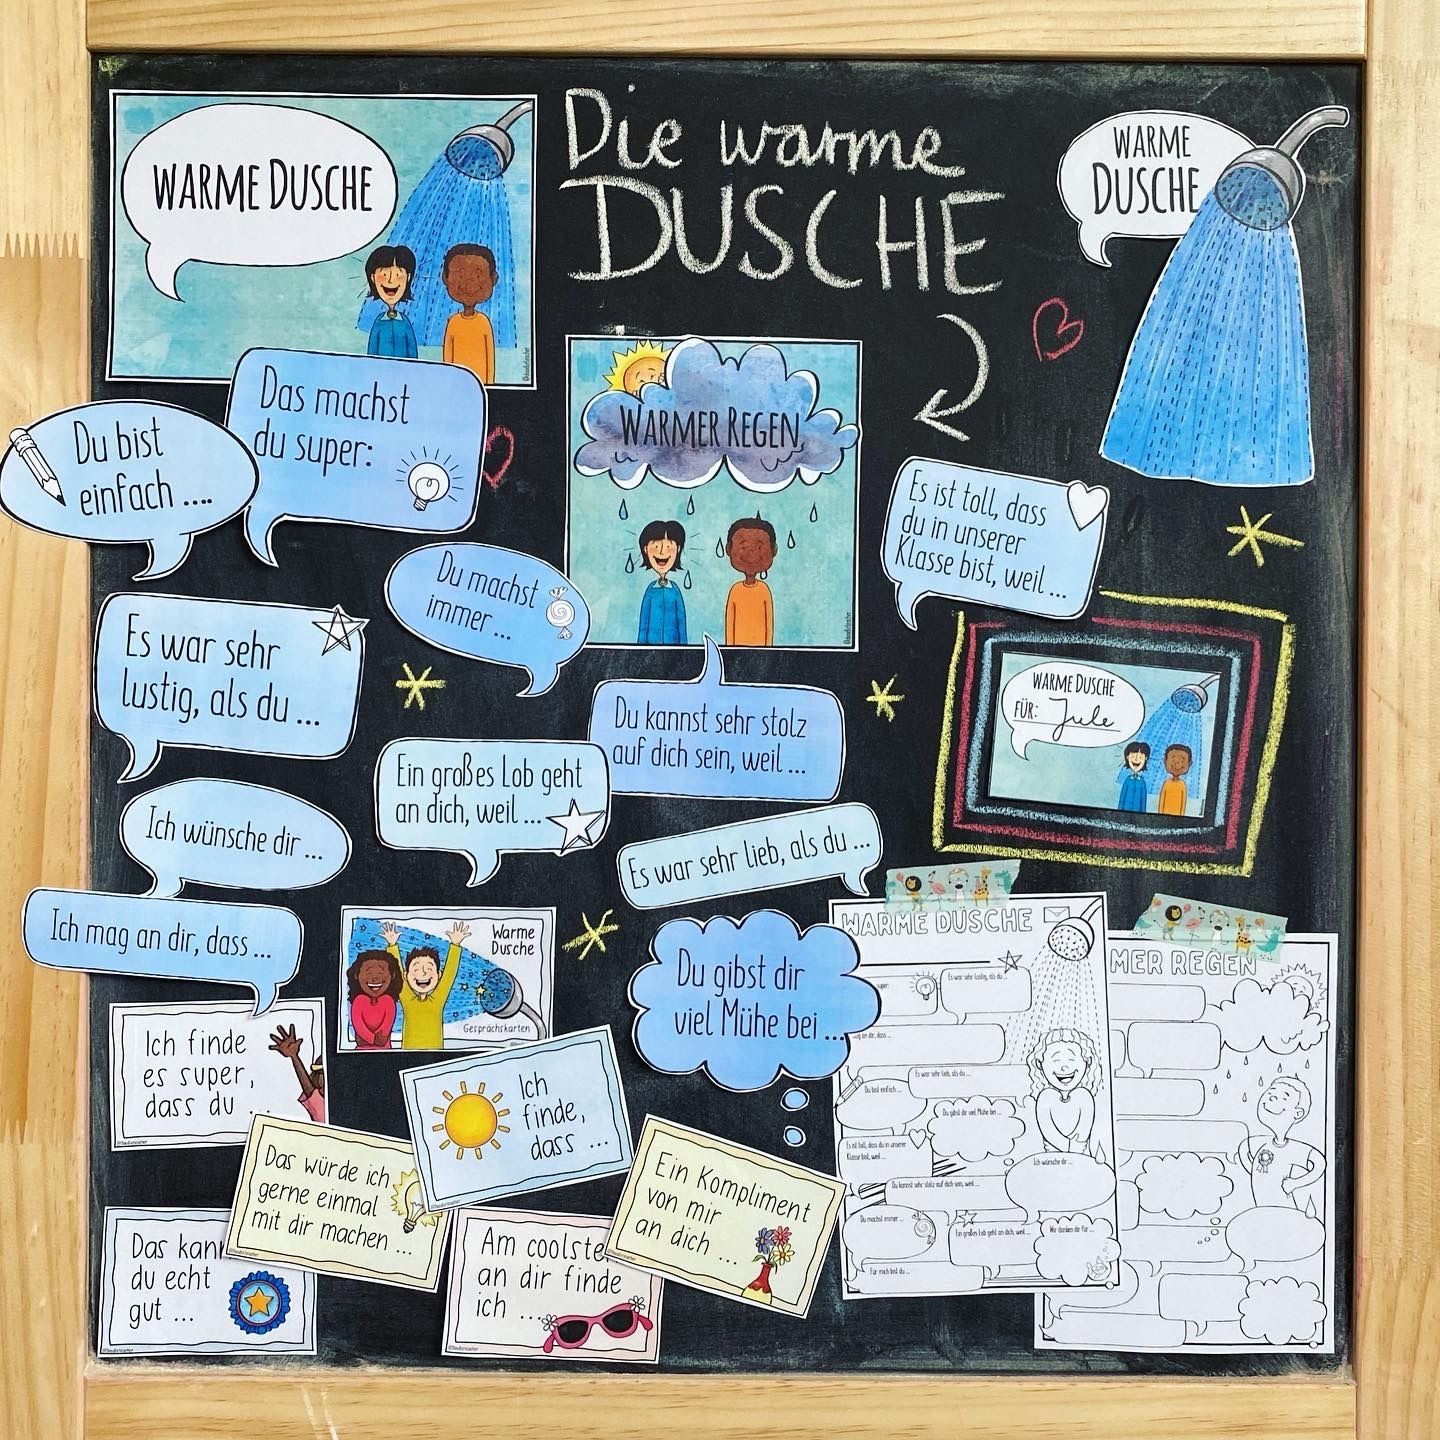 WARME DUSCHE
Die warme
DUSCHE
WARME
DUSCHE
WARMER REGEN
Das machst
du super:
Du bist
einfach ....
Du machst
immer ...
Es ist toll, dass
du in unserer
Klasse bist, weil ...
Es war sehr
lustig, als du ...
Du kannst sehr stolz
auf dich sein, weil ...
WARME DUSCHE
FÜR: Jule
Ein großes Lob geht
an dich, weil ...
Ich wünsche dir ...
Es war sehr lieb, als du ...
Ich mag an dir, dass ...
Warme
Dusche
Gesprächskarten
Du gibst dir
viel Mühe bei ...
Ich finde
es super,
dass du ...
Ich
finde,
dass ...
Das würde ich
gerne einmal
mit dir machen ...
Ein Kompliment
von mir
an dich ...
Das kann
du echt
gut ...
Am coolste
an dir finde
ich ...
WARME DUSCHE
super:
Es war sehr lustig, als du ...
an dir, dass ...
Es war sehr lieb, als du ...
Du bist einfach ...
Du gibst dir viel Mühe bei ...
Es ist toll, dass du in unserer
Klasse bist, weil ...
Ich wünsche dir ...
Du kannst sehr stolz auf dich sein, weil ...
Du machst immer ...
Ein großes Lob geht an dich, weil ...
Wir danken dir für ...
Für mich bist du ...
MER REGEN